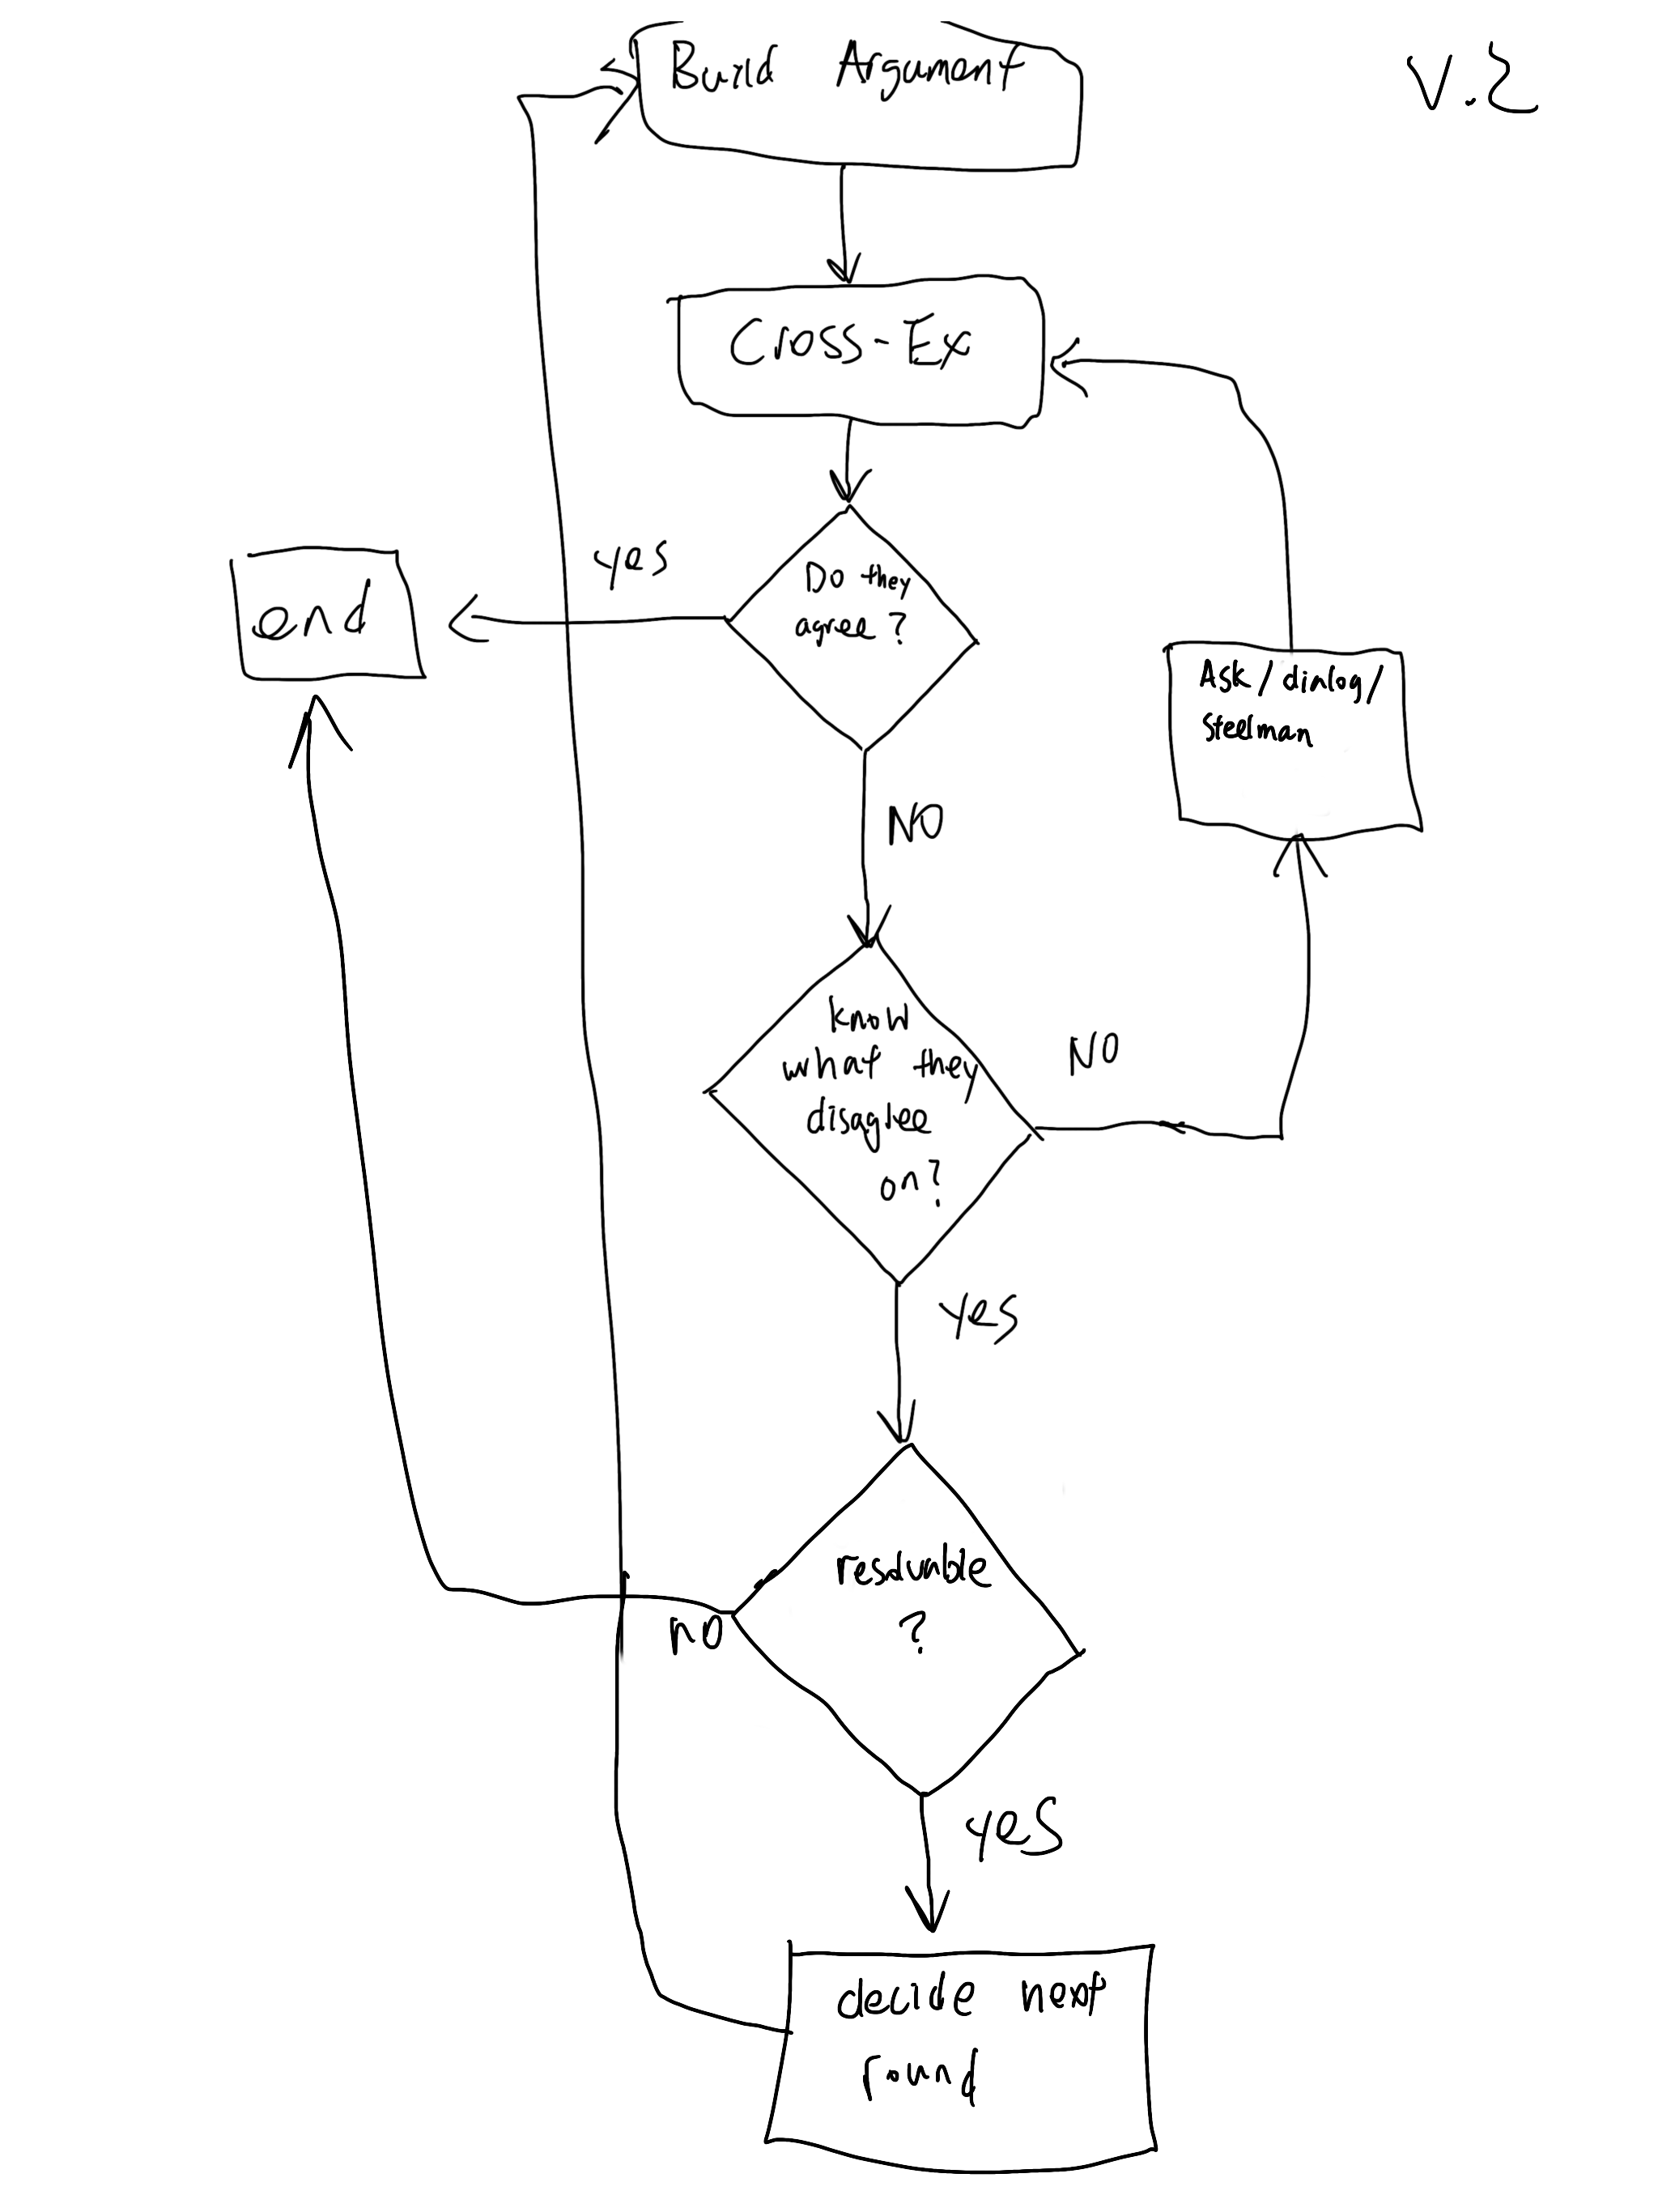 Build Argument
V.2
Cross-Ex
Do they
agree?
yes
end
Ask/dialog/
Steelman
NO
know
what they
disagree
on?
NO
yes
resolvable
?
no
yes
decide next
round